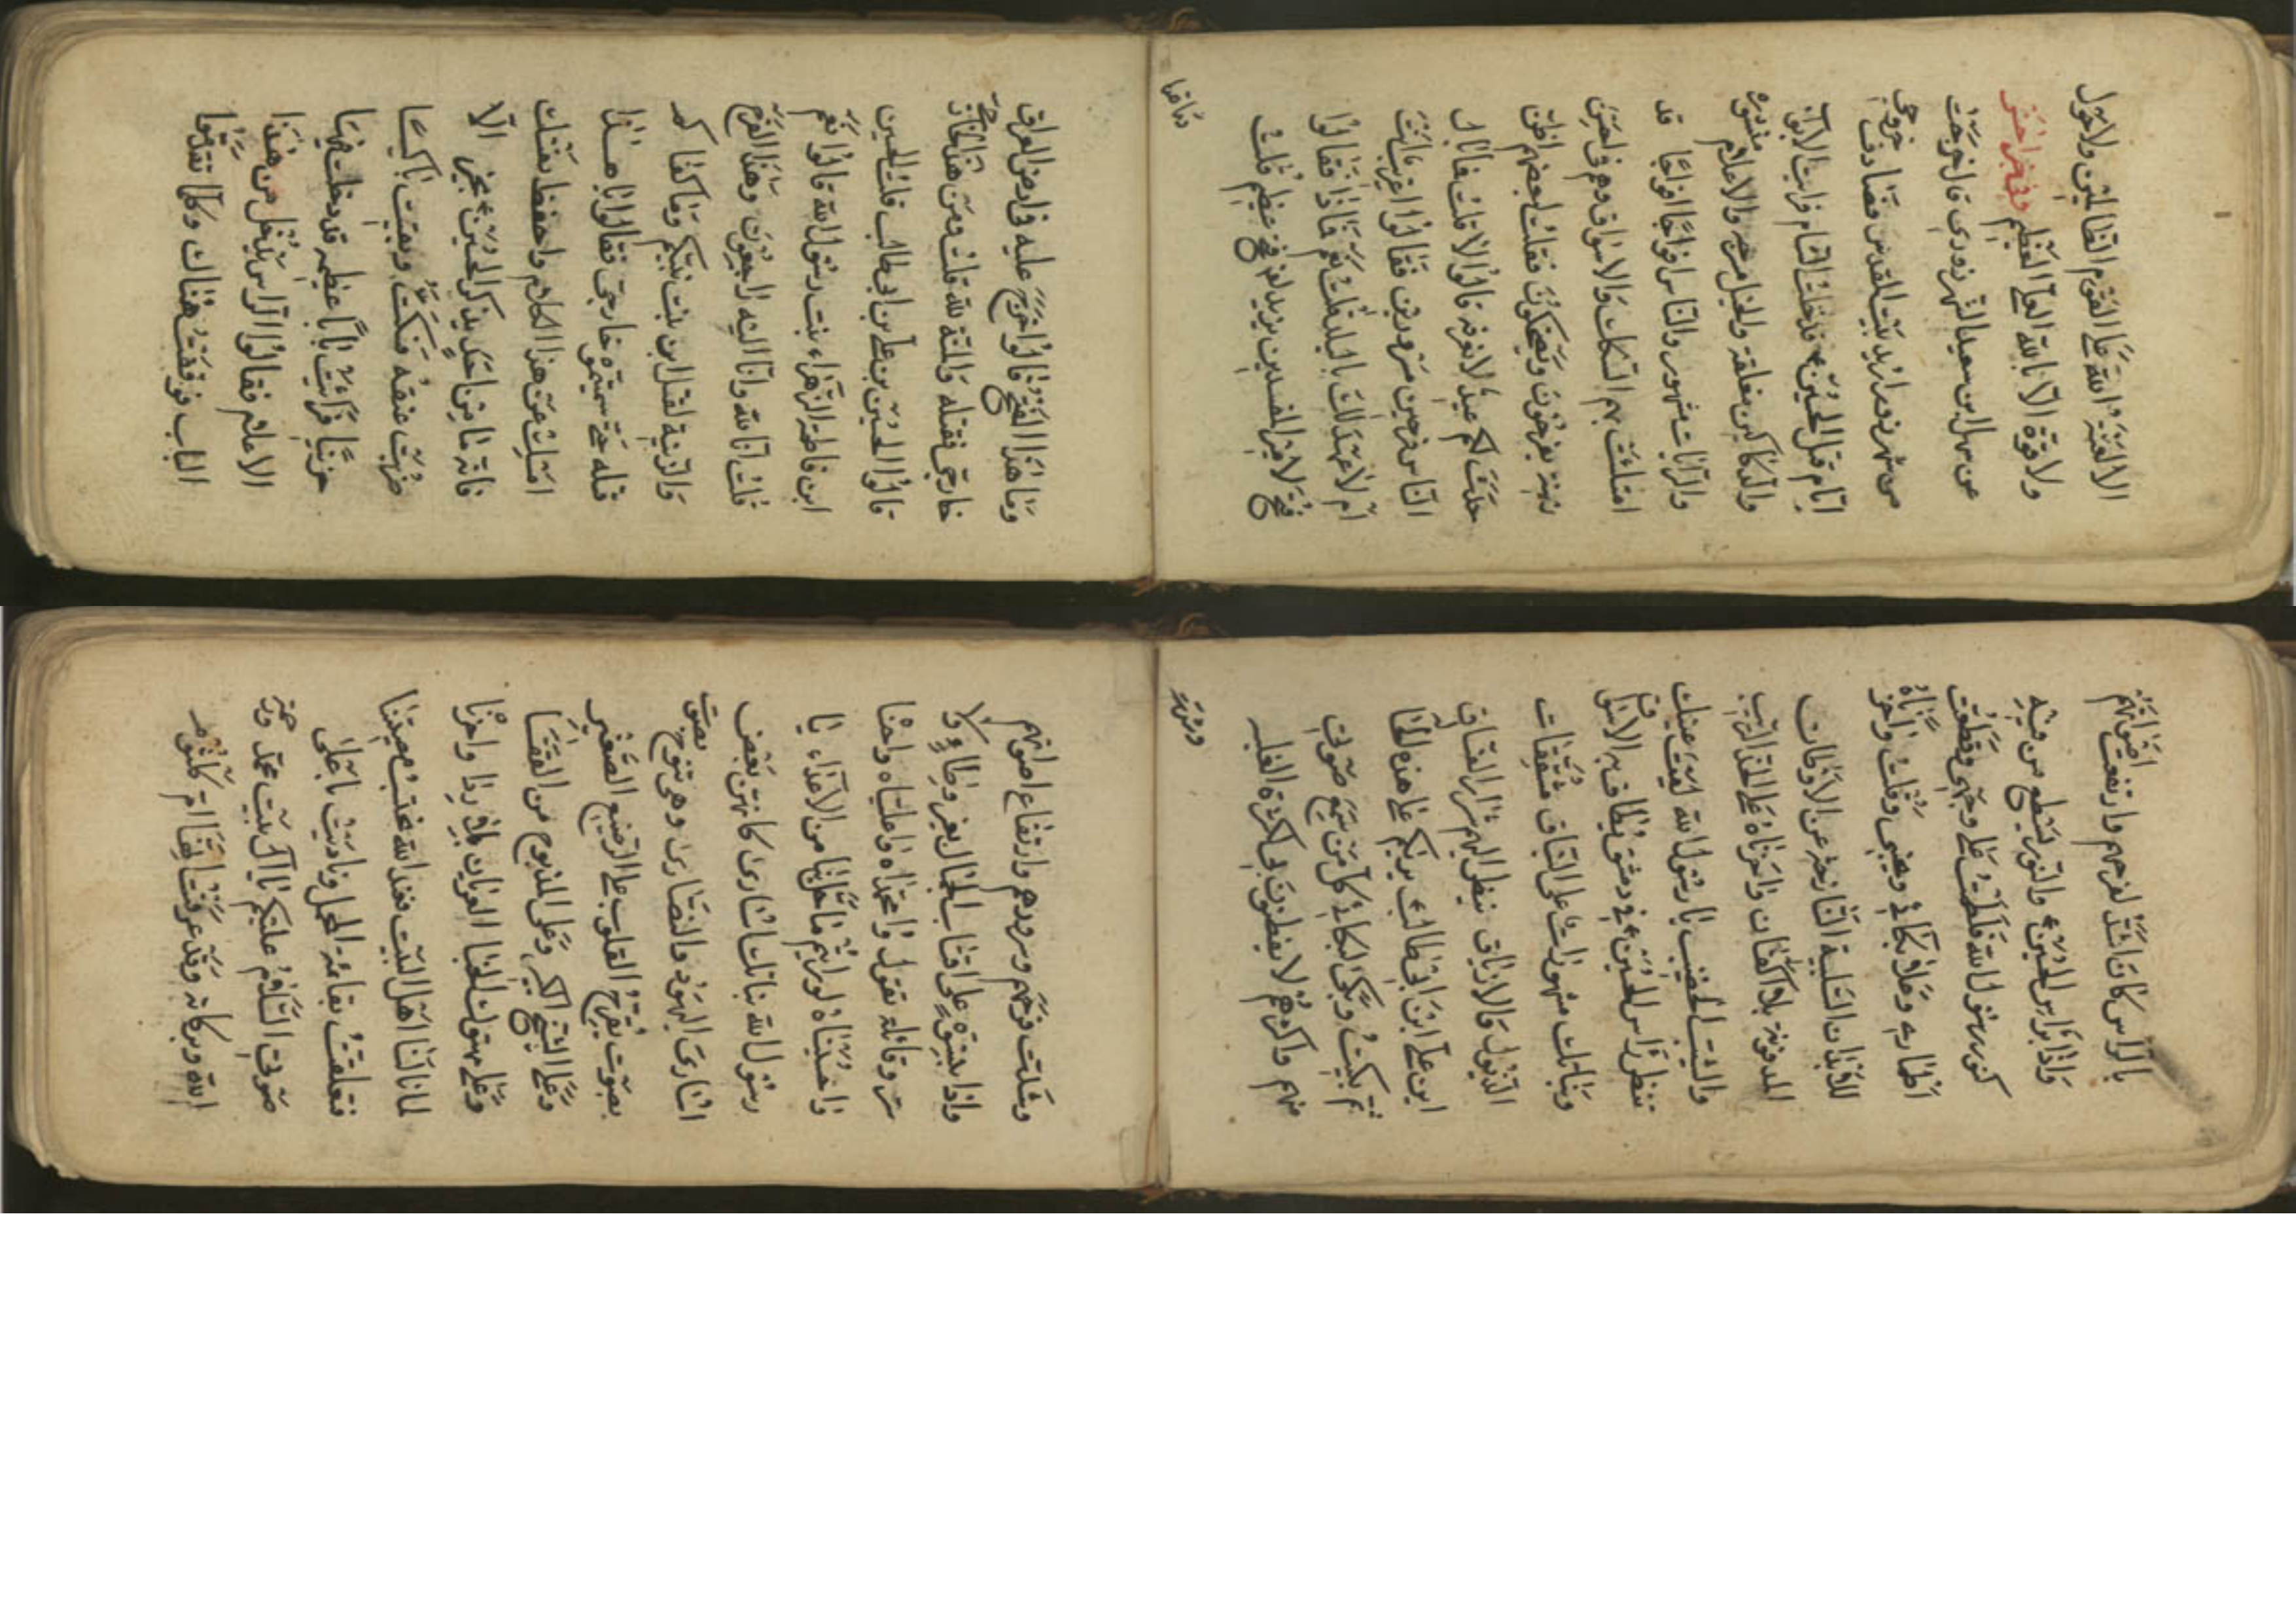 الا لعنة الله على القوم الظالمين ولا حول
ولا قوة الا بالله العلي العظيم وفي خبر اخر
عن سهل ابن سعيد الشهرزوري قال خرجت
من شهرزور اريد بيت المقدس فصادف خروجي
ايام قتل الحسين ع فدخلت الشام فرايت الابواب
والدكاكين مغلقة والخيل مسرجة والاعلام منشورة
والرايات مشهورة والناس افواجا افواجا قد
امتلئت بهم السكك والاسواق وهم في احسن
زينة يفرحون ويضحكون فقلت لبعضهم اظن
حدث لكم عيد لا نعرفه قالوا لا قلت فما بال
الناس فرحين مسرورين فقالوا اغريب انت
ام لا عهد لك بالبلد قلت نعم فماذا فقالوا
فتح لامير المفسدين يزيد لعن فتح عظيم قلت
وما هذا
وما هذا الفتح قالوا خرج عليه في ارض العراق
خارجي فقتله والمنة لله قلت ومن هذا الخارجي
قالوا الحسين بن علي بن ابي طالب قلت الحسين
ابن فاطمة الزهراء بنت رسول الله قالوا نعم
قلت انا لله وانا اليه راجعون وهذا الفرح
والزينة لقتل ابن بنت نبيكم وما كفاكم
قتله حتى سميتموه خارجي فقالوا يا هذا
امسك عن هذا الكلام واحفظ نفسك
فانه ما من احد يذكر الحسين ع بخير الا
ضربت عنقه فسكت وبقيت باكيا
حزينا فرايت بابا عظيمة قد دخلت فيها
الاعلام فقالوا الراس يدخل من هذا
الباب فوقفت هناك وكلما تقدموا
بالراس كان اشد لفرحهم وارتفعت اصواتهم
واذا براس الحسين ع والنور يسطع من فيه
كنور رسول الله فلطمت على وجهي وقطعت
اطماري وعلا بكائي ونحيبي وقلت واحزناه
للابدان السليبة النازحة عن الاوطان
المدفونة بلا اكفان واحزناه على الخد التريب
والشيب الخضيب يا رسول الله ليت عينك
تنظر راس الحسين ع في دمشق يطاف به الاسواق
وبناتك مشهورات على النياق مشققات
الذيول والازياق ينظر اليهم شرار الفساق
اين علي ابن ابي طالب يراكم على هذه الحال
ثم بكيت وبكى لبكائي كل من سمع صوتي
منهم واكثرهم لا يفطنون بي لكثرة الغلبة
وسرور
وشدت فرحهم وسرورهم وارتفاع اصواتهم
واذا بنسوة على اقتاب الجمال بغير وطاء ولا
ستر وقائلة تقول وا محمداه وا علياه وا حسناه
وا حسيناه لو رايتم ما حل بنا من الاعداء يا
رسول الله بناتك اسارى كانهن بعض
اسارى اليهود والنصارى وهي تنوح بصوت
بصوت يقرح القلوب على الرضيع الصغير
وعلى الشيخ الكبير وعلى المذبوح من القفا
وعلى مهتوك الخبا العريان بلا ردا واحزنا
لما نالنا اهل البيت فعند الله نحتسب مصيبتنا
فتعلقت بقائمة المحمل وناديت باعلى
صوتي السلام عليكم يا ال بيت محمد ورحمة
الله وبركاته وقد عرفت انها ام كلثوم